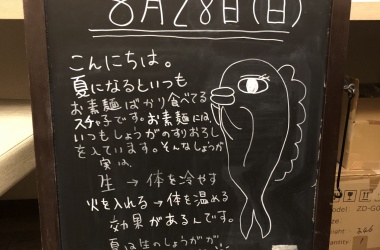 8月28日(日)
こんにちは。
夏になるといつも
お素麺ばかり食べてる
スチャ子です。お素麺には、
いつもしょうがのすりおろし
を入ています。そんなしょうが
実は、
生→体を冷やす
火を入れる→体を温める
効果があるんです。
夏は生のしょうがが
Model: ZD-G